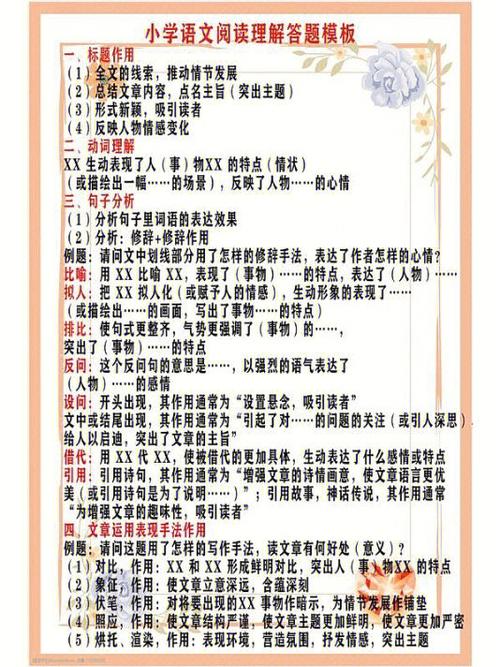 小学语文阅读理解答题模板
一、标题作用
（1）全文的线索，推动情节发展
（2）总结文章内容，点名主旨（突出主题）
（3）形式新颖，吸引读者
（4）反映人物情感变化
二、动词理解
XX 生动表现了人（事）物XX 的特点（情状）
（或描绘出一幅……的场景），反映了人物……的心情
三、句子分析
（1）分析句子里词语的表达效果
（2）分析：修辞+修辞作用
例题：请问文中划线部分用了怎样的修辞手法，表达了作者怎样的心情？
比喻：用 XX 比喻 XX，表现了（事物）……的特点，表达了（人物）……
拟人：把 XX 拟人化（或赋予人的情感），生动形象的表现了……
（或描绘出……的画面，写出了事物……的特点）
排比：使句式更整齐，气势更强调了（事物）的……，
突出了（事物）……的特点
反问：这个反问句的意思是……，以强烈的语气表达了
（人物）……的感情
设问：开头出现，其作用通常为“设置悬念，吸引读者”
文中或结尾出现，其作用通常为“引起了对……的问题的关注（或引人深思），
给人以启迪，突出了文章的主旨”
借代：用 XX 代 XX，使被借代的更加具体，生动表达了什么感情或特点
引用：引用诗句，其作用通常为“增强文章的诗情画意，使文章语言更优
美（或引用诗句是为了说明……）”；引用故事，神话传说，其作用通常
“为增强文章的趣味性，吸引读者”
四、文章运用表现手法作用
例题：请问这题用了怎样的写作手法，读文章有何好处（意义）？
（1）对比，作用：XX 和 XX 形成鲜明对比，突出人（事）物XX 的特点
（2）象征，作用：使文章立意深远，含蕴深刻
（3）伏笔，作用：对将要出现的XX 事物作暗示，为情节发展作铺垫
（4）照应，作用：使文章结构严谨，使文章主题更加鲜明，使文章更加严密
（5）烘托、渲染，作用：表现环境，营造氛围，抒发情感，突出主题